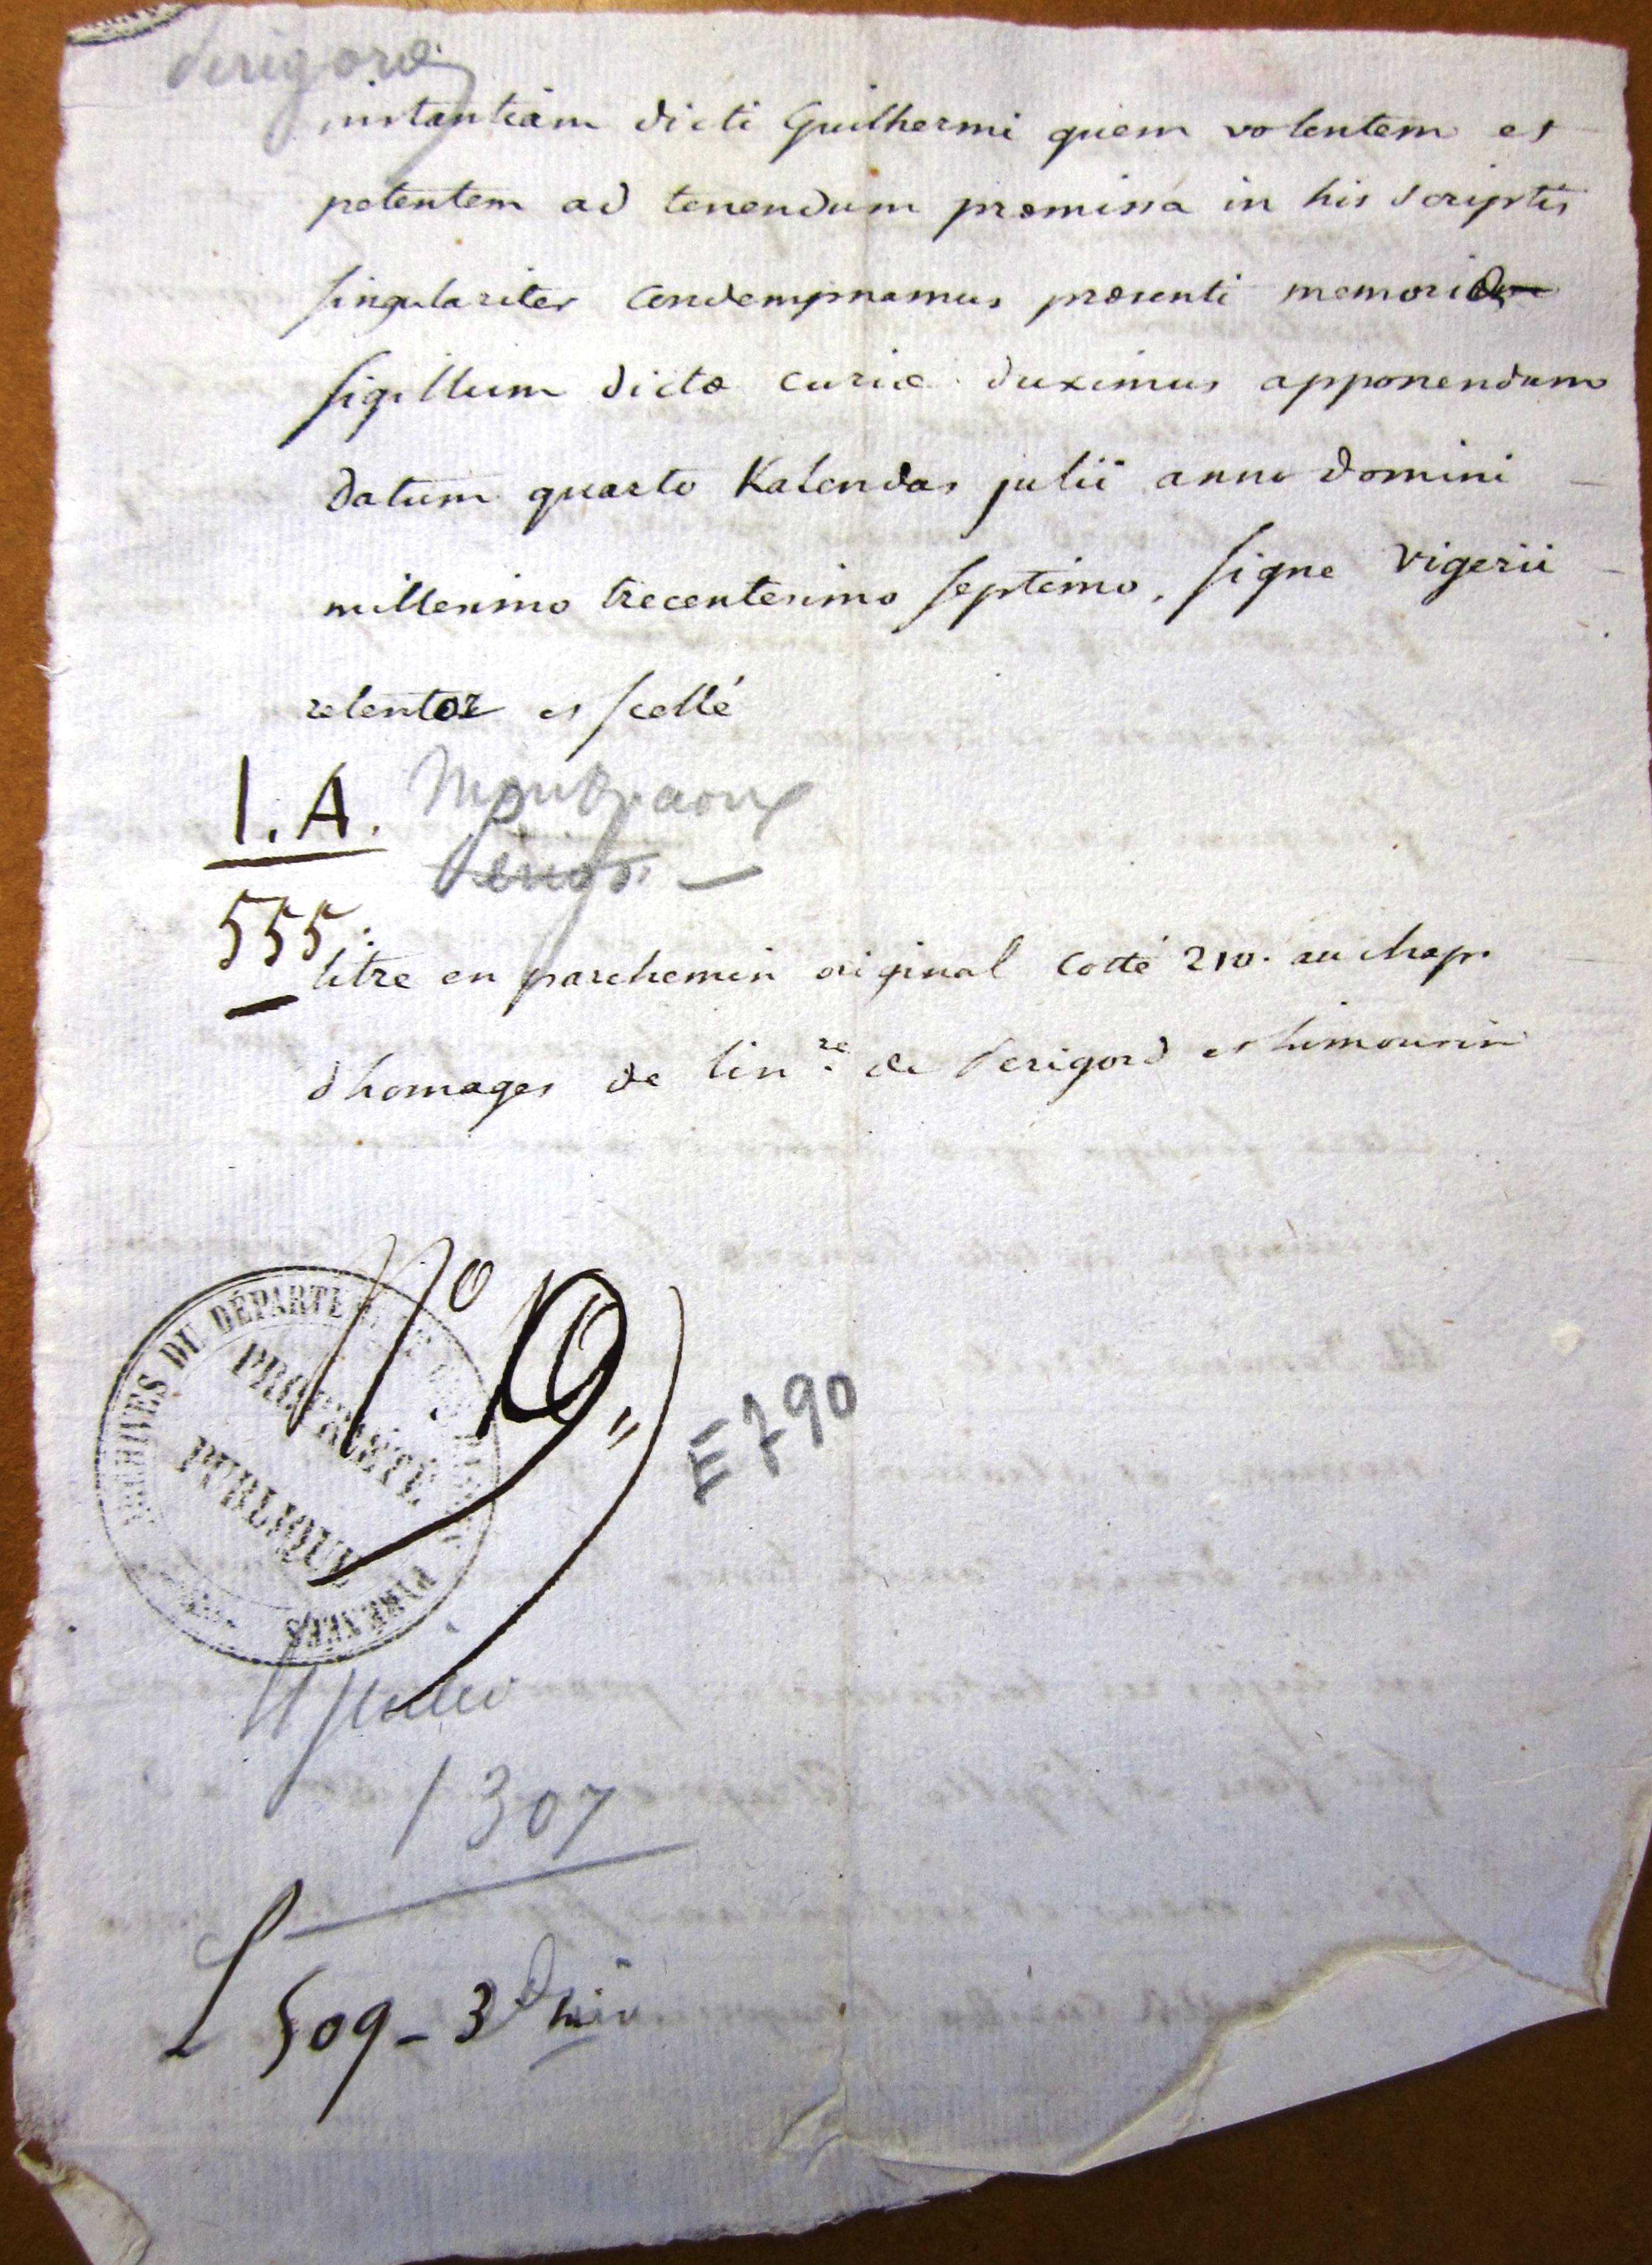 Perigord
instantiam dicti Guilhermi quem volentem et
petentem ad tenendum præmissa in his scriptis
singulariter condempnamus præsenti memoriæ
sigillum dictæ curiæ duximus apponendum
datum quarto Kalendas julii anno domini
millesimo trecentesimo septimo, signe Vigerii
retentor et scellé
I. A.
Perigo.
555.
titre en parchemin original cotté 210. au chap.
dhomages de linre. de Perigord et Limousin
No
ARCHIVES DU DÉPARTEMENT DES BASSES PYRÉNÉES
PROPRIÉTÉ
PUBLIQUE
E 790
1307
509 - 3